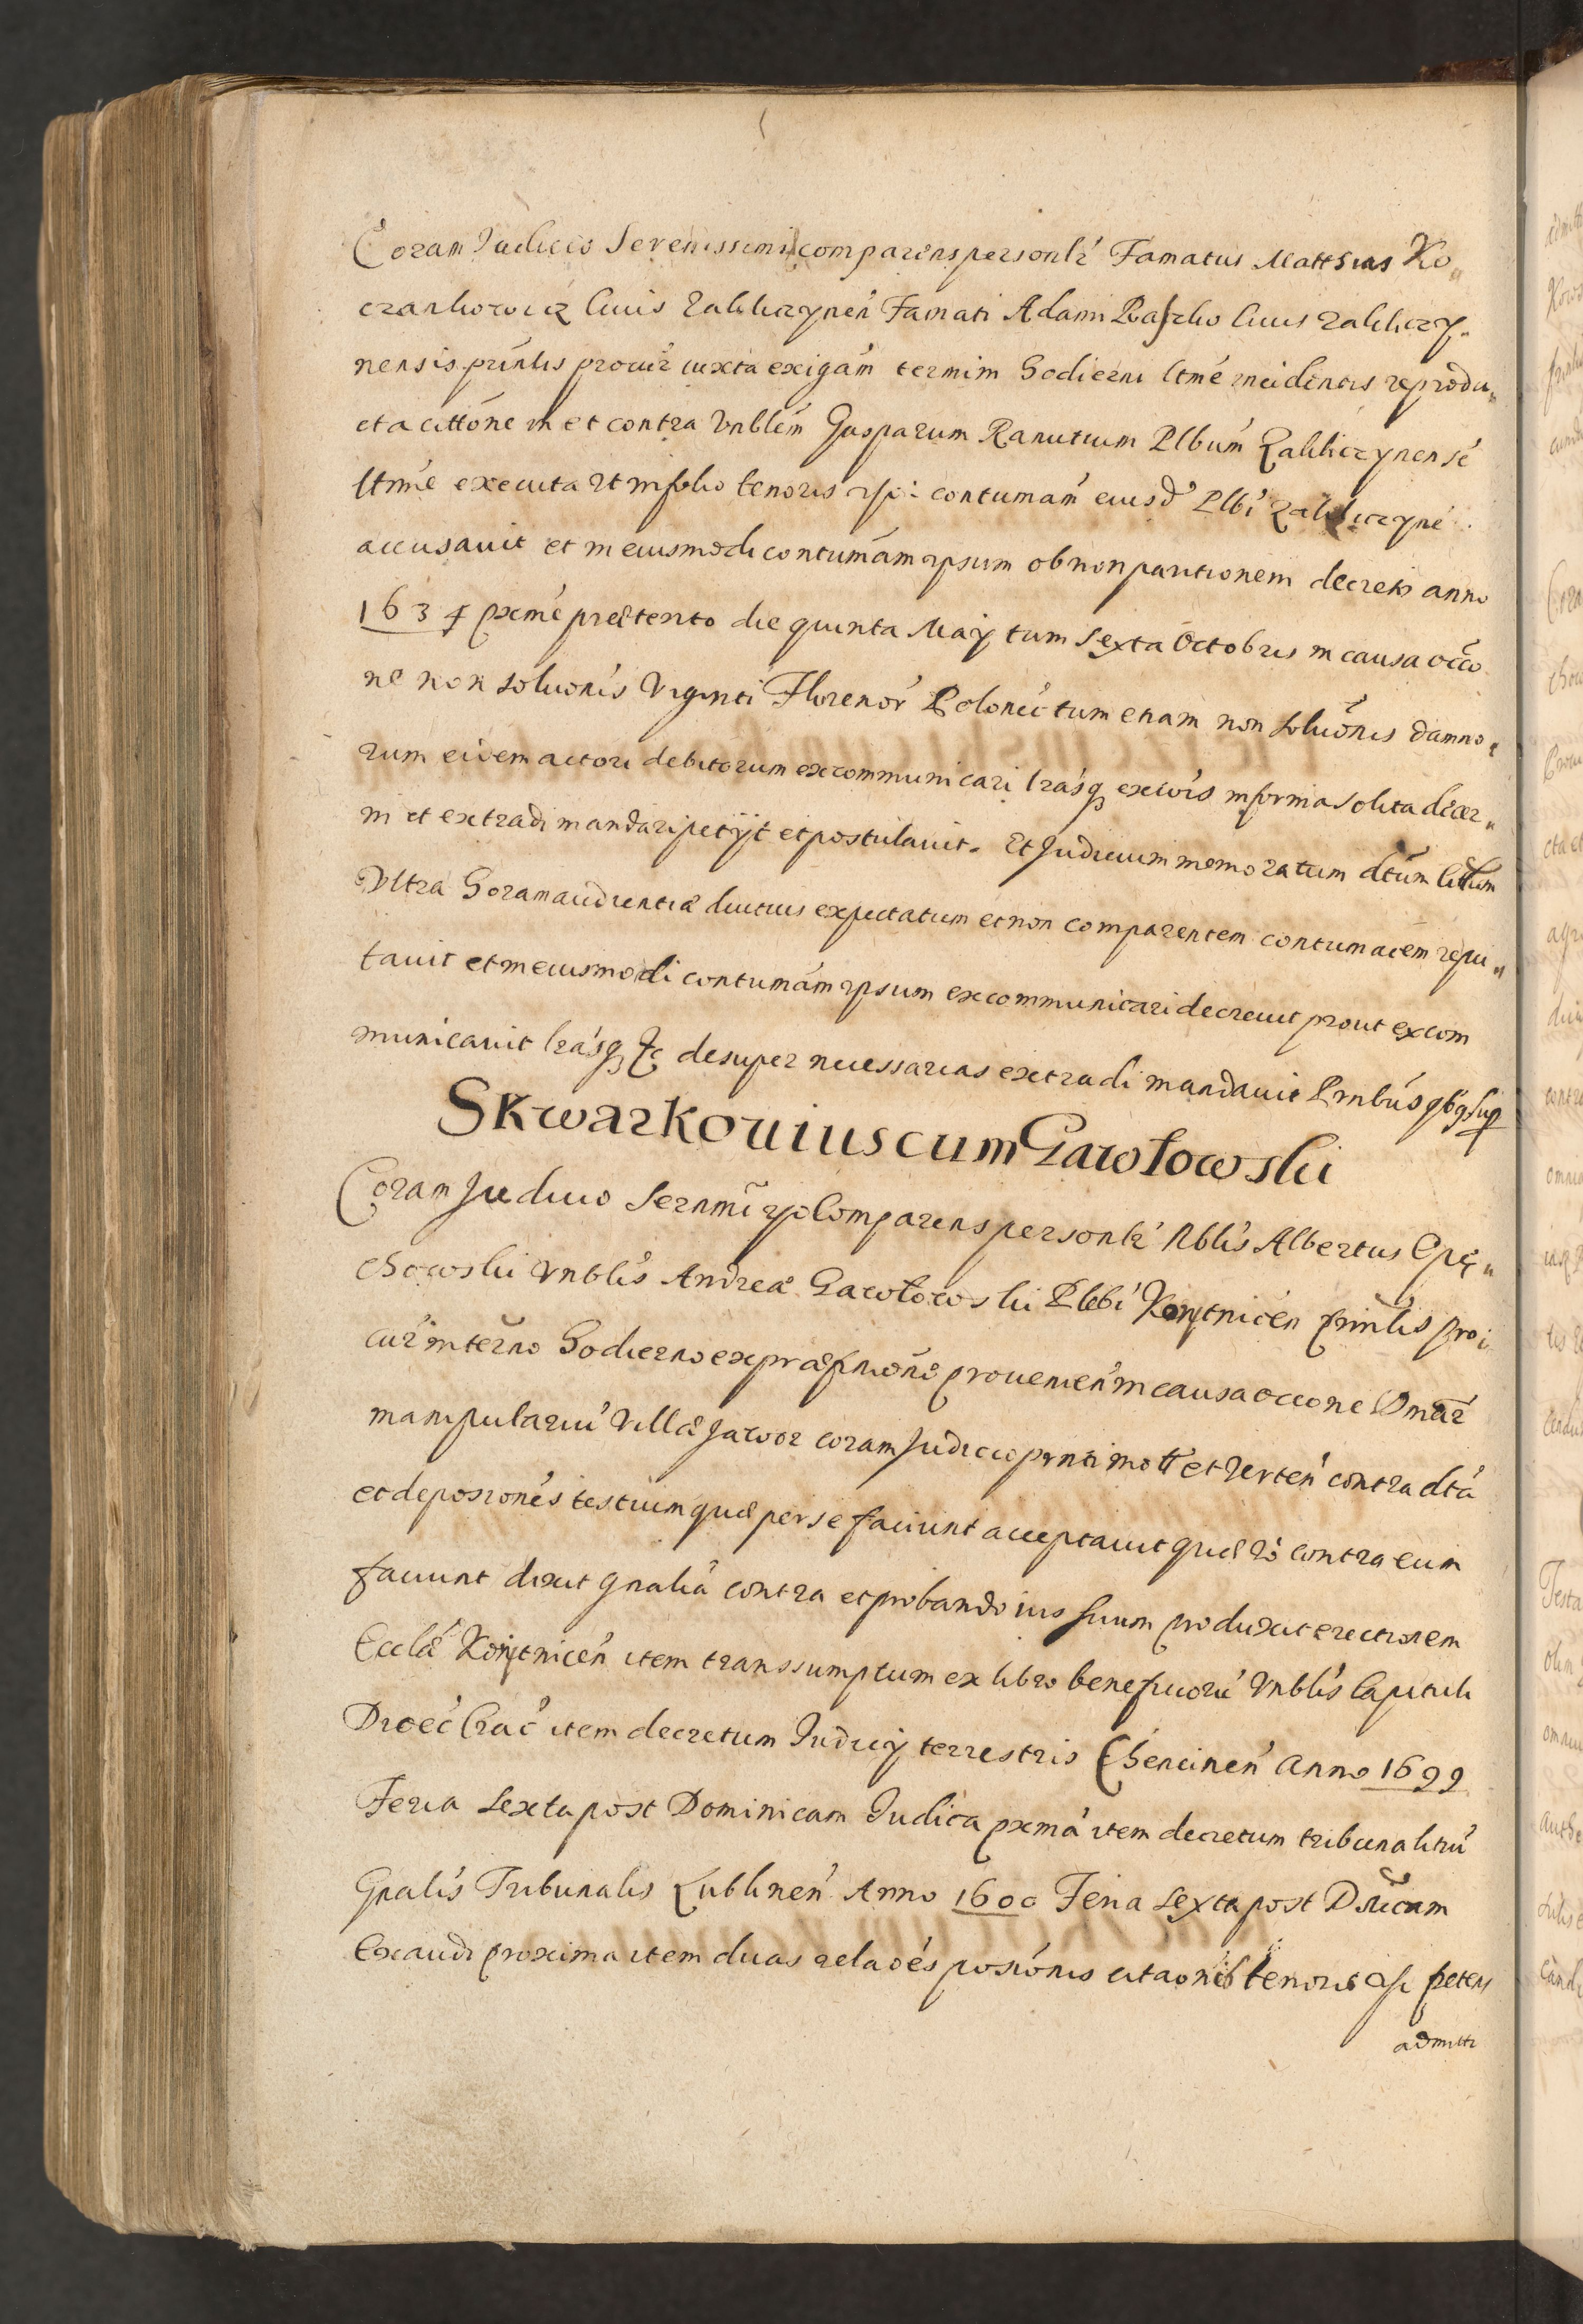 Coram Judicio Serenissimi comparens personlr Famatus Matthias Ko„
czankowicz Civis Zakliczynen Famati Adami Raszko Civis Zakliczy„
nensis prinlis procur iuxta exigam termini hodierni ltme incidentis reprodu„
cta cittone in et contra Vnblem Gasparum Ranutium Plbum Zakliczynense
ltme executa et in folio tenoris rpo: contumam eiusd Plbi Zakliczyne
accusavit et in eiusmodi contumam ipsum ob non paritionem decretis anno
1634 pxme prætento die quinta Maij tum sexta Octobris in causa occo
ne non soluonis Viginti Florenor Polonic tum etiam non soluonis damno„
rum eidem actori debitorum excommunicari lrasq exEois in forma solita decer„
ni et extradi mandari petijt et postulavit. Et Judicium memoratum dtum Cittum
Vltra horam audientiæ diutius expectatum et non comparentem contumacem repu„
tavit et in eiusmodi contumam ipsum excommunicari decrevit prout excom
municavit lrasq &c desuper necessarias extradi mandavit Pntbus qbg sup
Skwarkovius cum Gawłowski
Coram Judicio Sernmi rpo Comparens personlr Nblis Albertus Opę„
chowski Vnblis Andreæ Gawłowski Plebi Konitnicen prinlis pro„
cur in termo hodierno ex præfinione provenien in causa occone Dmar
manipulariu Villæ Jawor coram Judicio pnti mott et Verten contra dta
et deposiones testium quæ per se faciunt acceptavit quæ vo contra eum
faciunt dixit gnalia contra et probando ius suum produxit erectionem
Ecclæ Konitnicen item transsumptum ex libro beneficioru Vnblis Capituli
Dioec Crac item decretum Judicij terrestris Chencinen Anno 1699
Feria Sexta post Dominicam Judica pxma item decretum tribunalitiu
Gnalis Tribunalis Lublinen Anno 1600 Feria Sexta post Dnicam
Exaudi proxima item duas relaoes posionis citaonis tenoris rpo petens
admitti